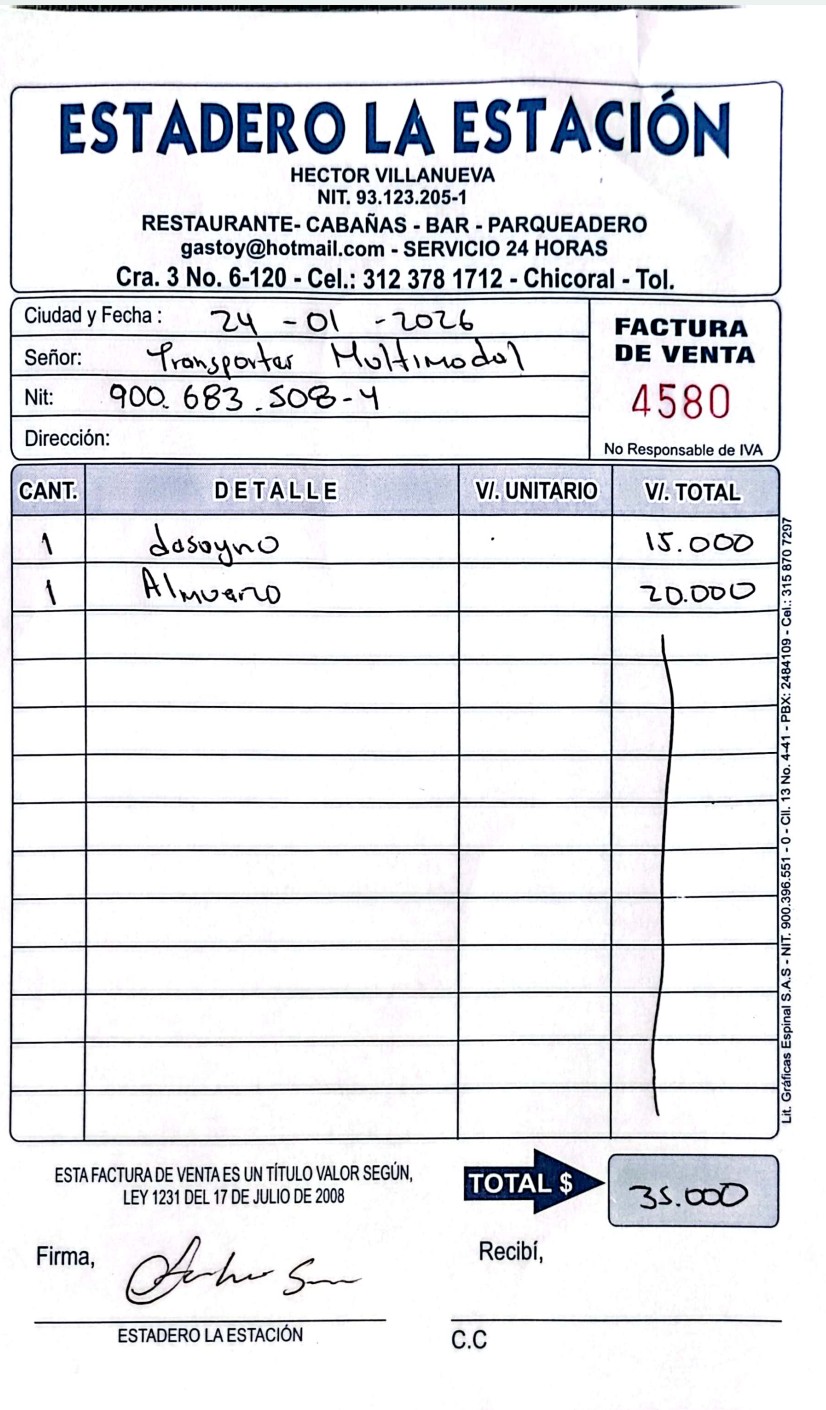 ESTADERO LA ESTACIÓN
HECTOR VILLANUEVA
NIT. 93.123.205-1
RESTAURANTE- CABAÑAS - BAR - PARQUEADERO
gastoy@hotmail.com - SERVICIO 24 HORAS
Cra. 3 No. 6-120 - Cel.: 312 378 1712 - Chicoral - Tol.
Ciudad y Fecha : 24 - 01 - 2026
Señor: Transportes Multimodal
Nit: 900. 683 .508-4
Dirección:
FACTURA
DE VENTA
4580
No Responsable de IVA
CANT. DETALLE V/. UNITARIO V/. TOTAL
1 dasayno 15.000
1 Almuerzo 20.000
Lit. Gráficas Espinal S.A.S - NIT. 900.396.551 - 0 - Cll. 13 No. 4-41 - PBX: 2484109 - Cel.: 315 870 7297
ESTA FACTURA DE VENTA ES UN TÍTULO VALOR SEGÚN,
LEY 1231 DEL 17 DE JULIO DE 2008
TOTAL $ 35.000
Firma,
Recibí,
ESTADERO LA ESTACIÓN
C.C